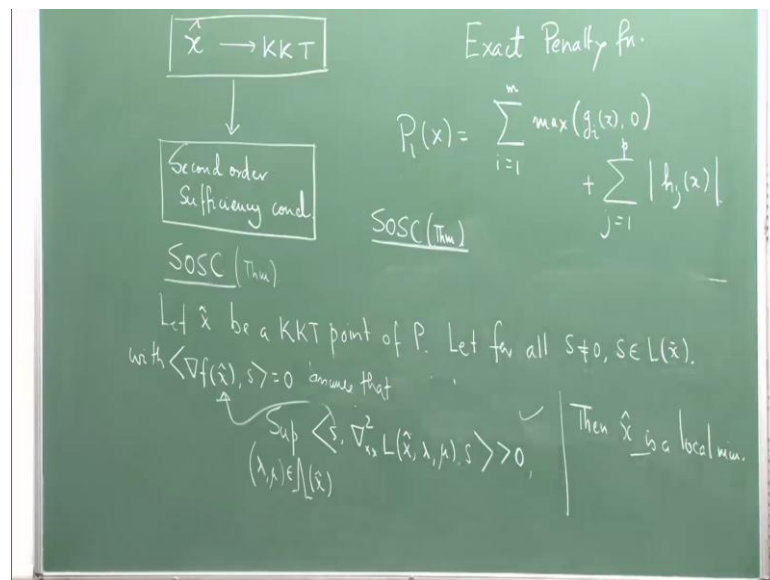 x̂ → KKT
Second order
Sufficiency cond.
SOSC (Thm)
Exact Penalty fn.
P₁(x) = ∑_{i=1}^{m} max(gᵢ(x), 0)
+ ∑_{j=1}^{p} |hⱼ(x)|
SOSC (Thm)
Let x̂ be a KKT point of P. Let for all s≠0, s∈L(x̂).
with <∇f(x̂), s> = 0 assume that
Sup <s, ∇²ₓₓ L(x̂, λ, μ) s> > 0,
(λ, μ) ∈ Λ(x̂)
Then x̂ is a local min.